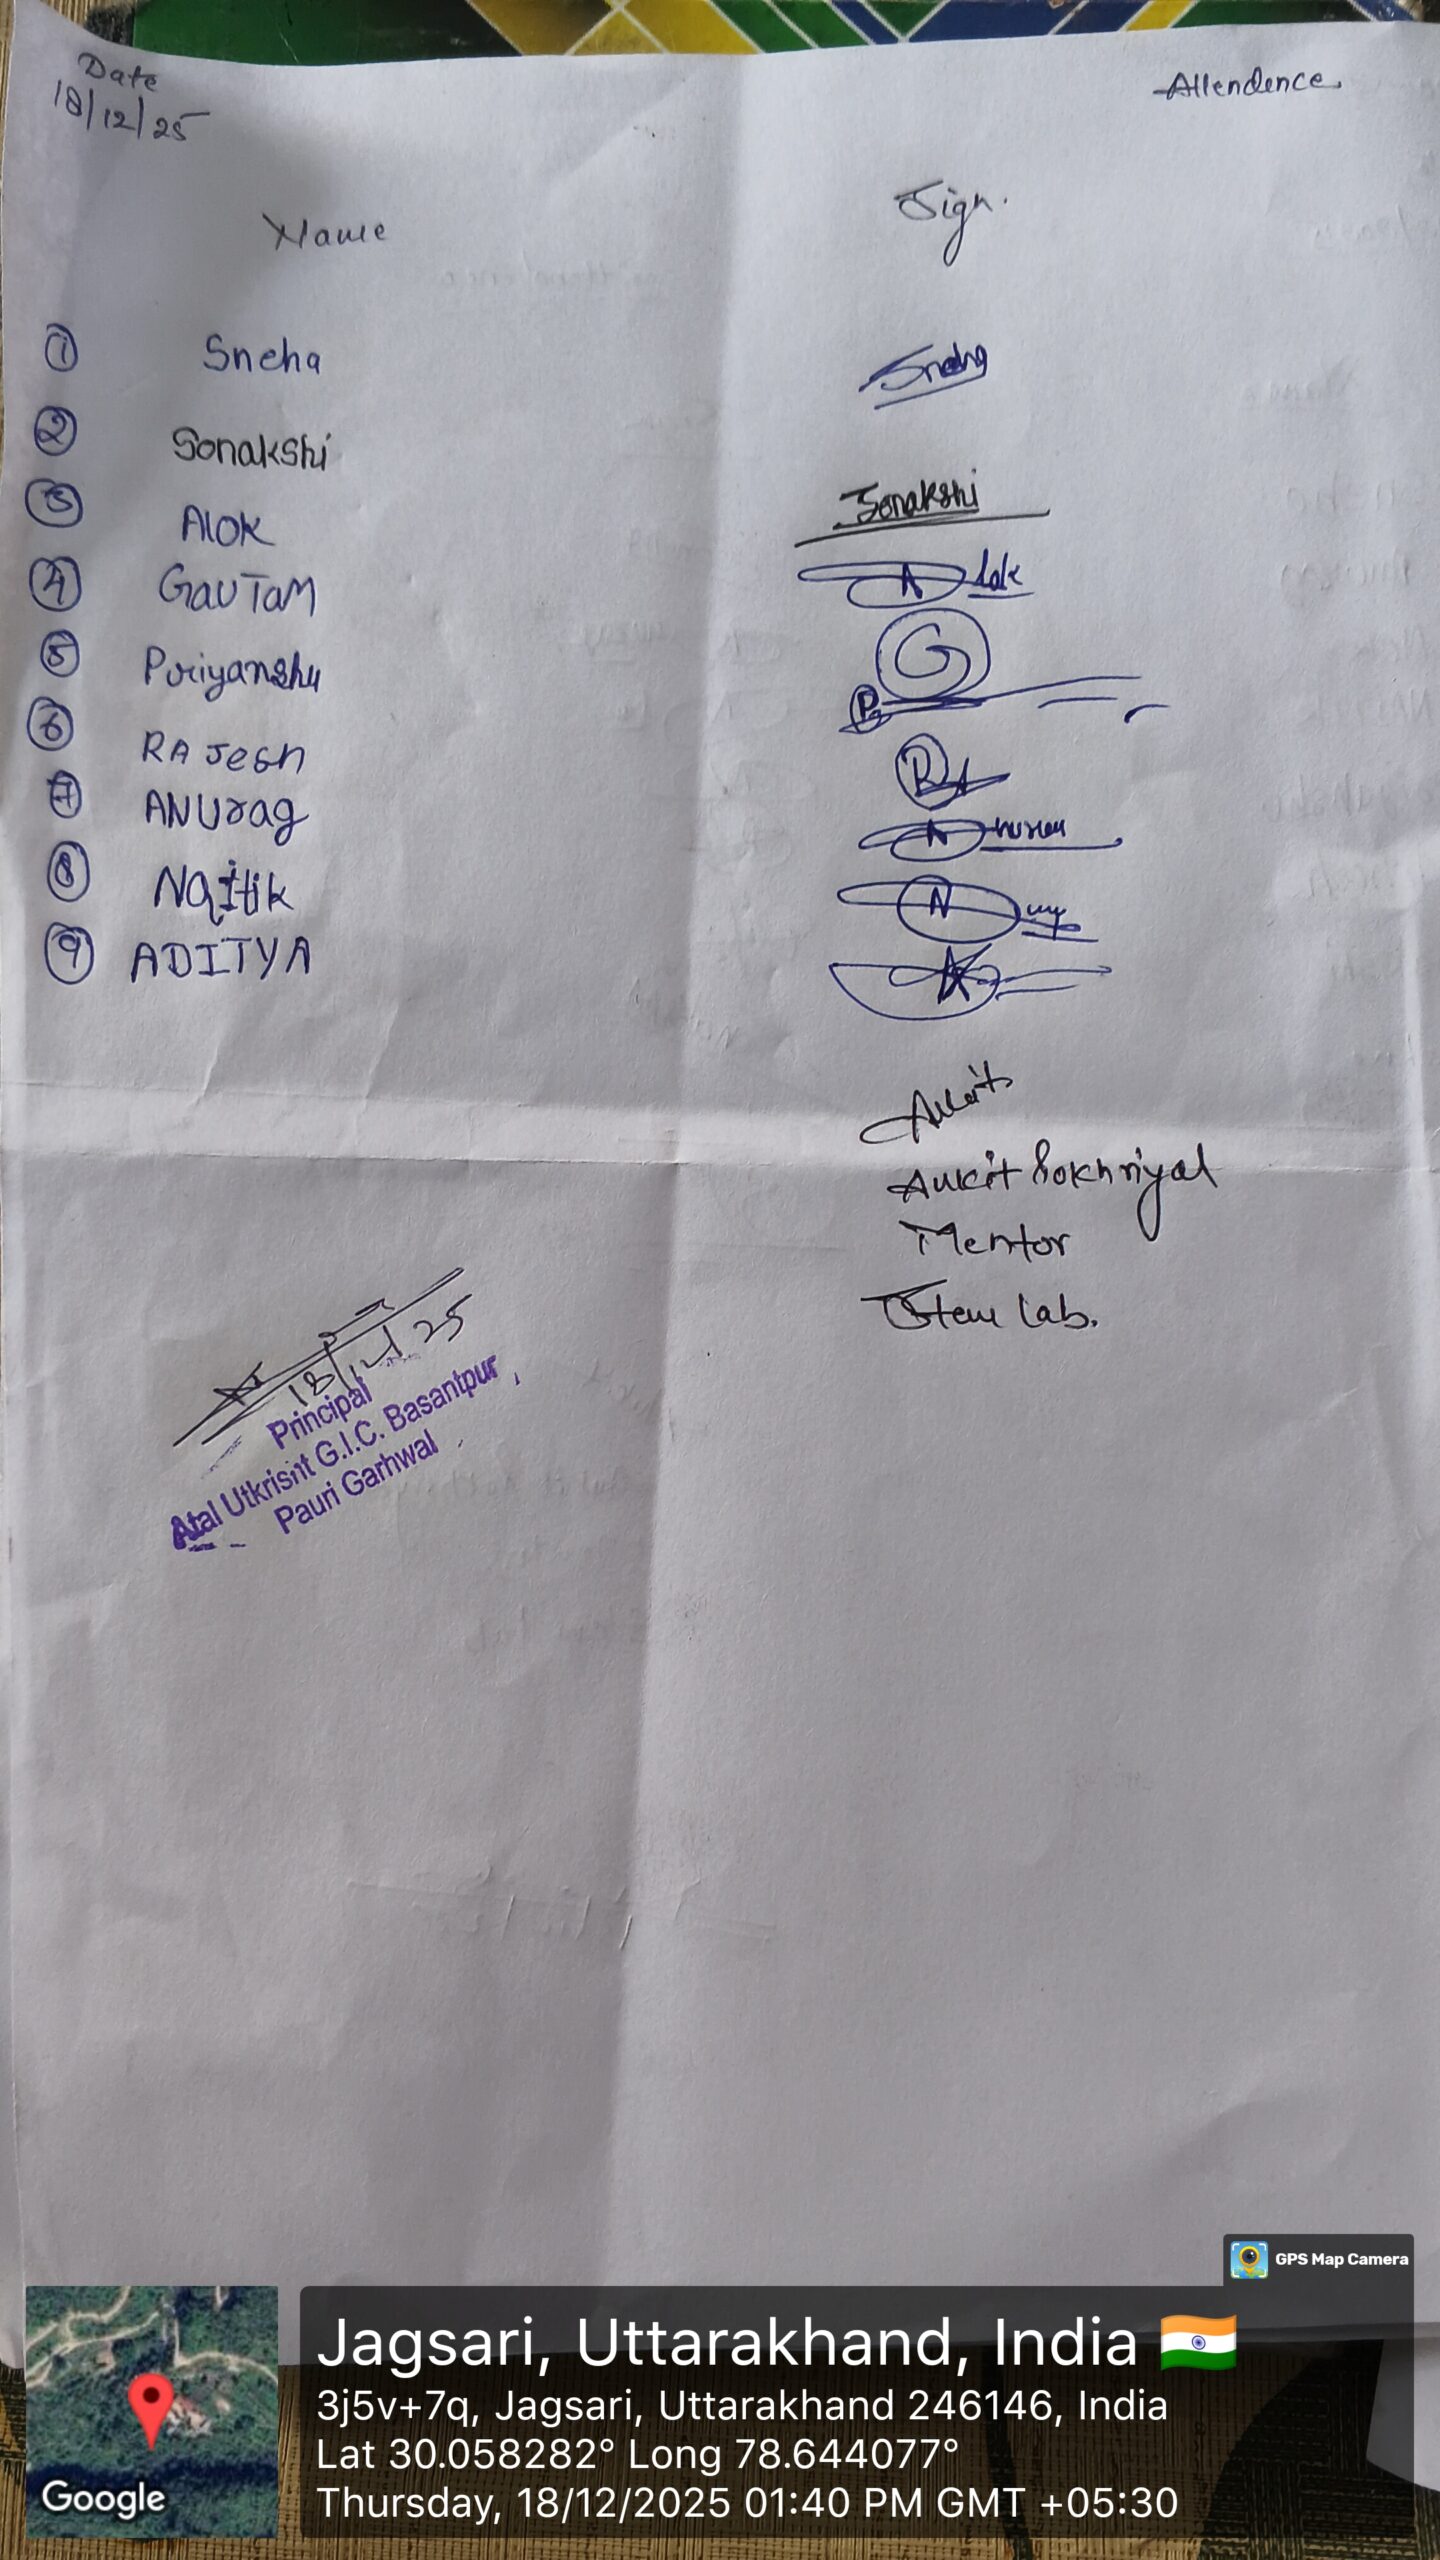 Date
18/12/25
Attendence
Name
Sign.
1 Sneha Sneha
2 Sonakshi Sonakshi
3 Alok Alok
4 GauTam G
5 Puriyanshu P
6 RAJesh R
7 ANUrag
8 NaItik N
9 ADITYA A
Ankit
Ankit Pokhriyal
Mentor
Stem lab.
18/12/25
Principal
Atal Utkrisht G.I.C. Basantpur
Pauri Garhwal
GPS Map Camera
Google
Jagsari, Uttarakhand, India
3j5v+7q, Jagsari, Uttarakhand 246146, India
Lat 30.058282° Long 78.644077°
Thursday, 18/12/2025 01:40 PM GMT +05:30